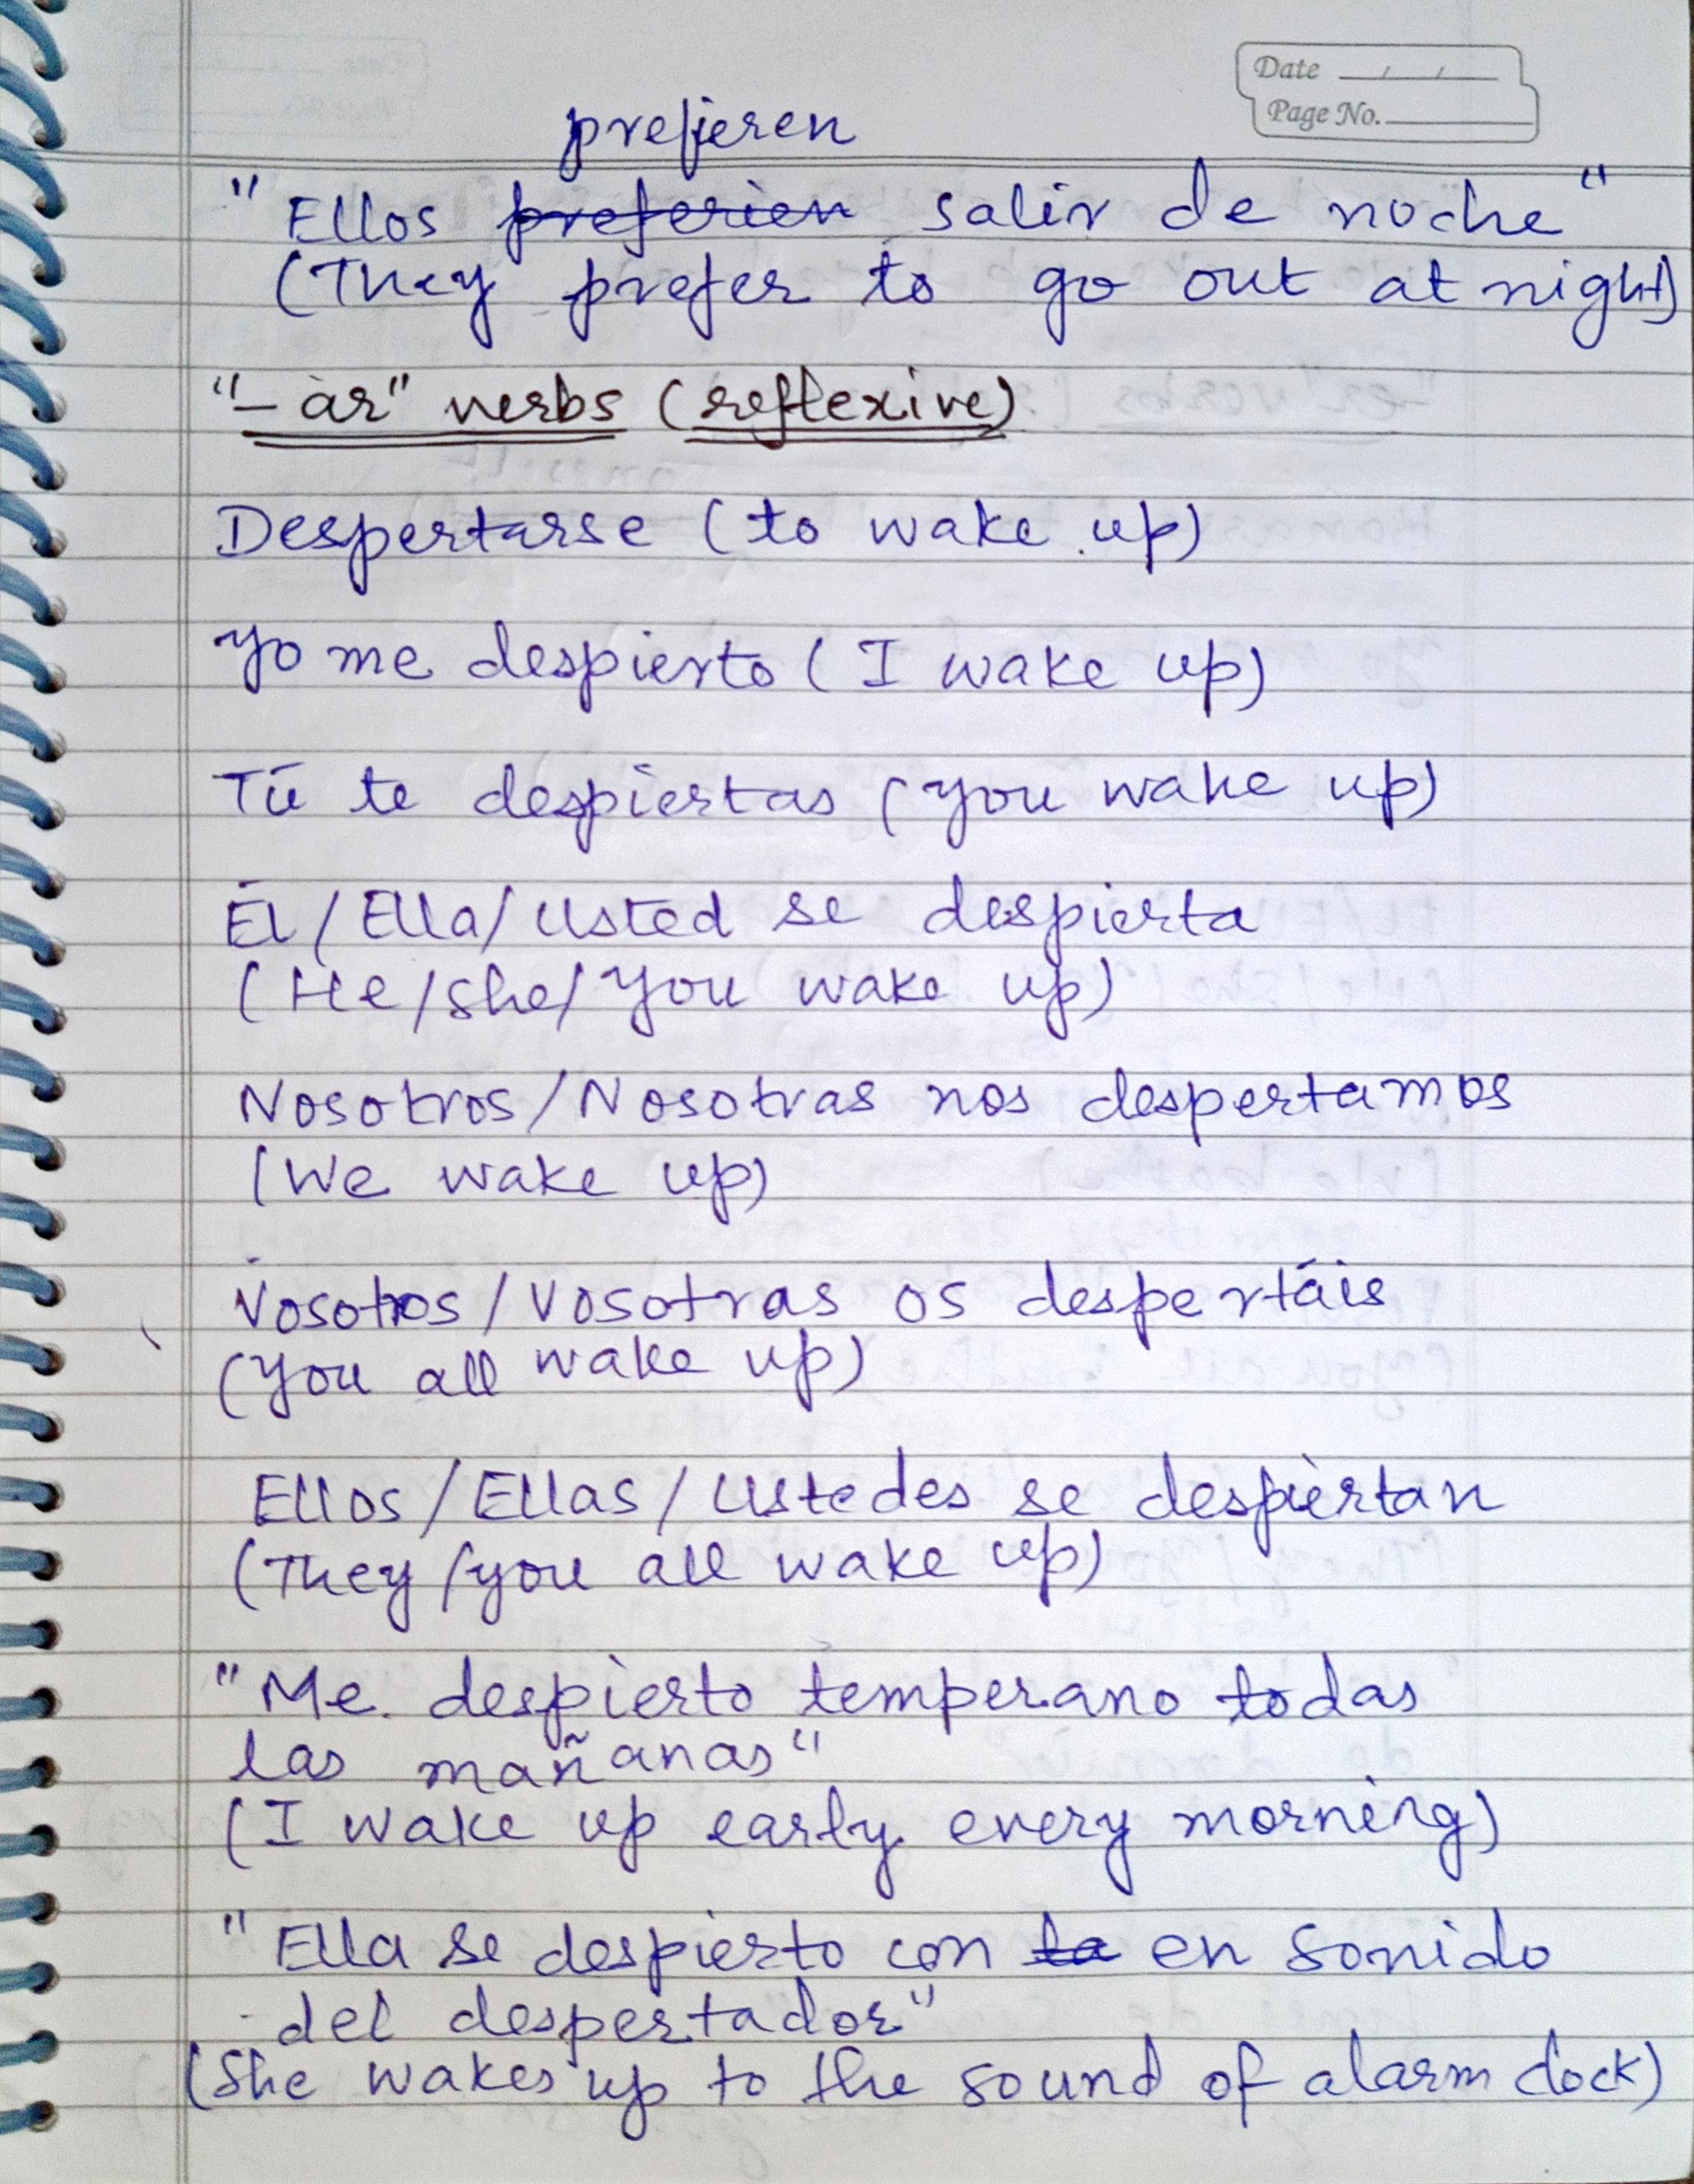 Date __/__/__
Page No.
prefieren
"Ellos preferien salir de noche"
(They prefer to go out at night)
"-ar" verbs (reflexive)
Despertarse (to wake up)
Yo me despierto (I wake up)
Tú te despiertas (you wake up)
Él/Ella/Usted se despierta
(He/she/you wake up)
Nosotros/Nosotras nos despertamos
(We wake up)
Vosotros/Vosotras os despertáis
(you all wake up)
Ellos/Ellas/Ustedes se despiertan
(They/you all wake up)
"Me despierto temperano todas
las mañanas"
(I wake up early every morning)
"Ella se despierto con la en sonido
del despertador"
(She wakes up to the sound of alarm clock)